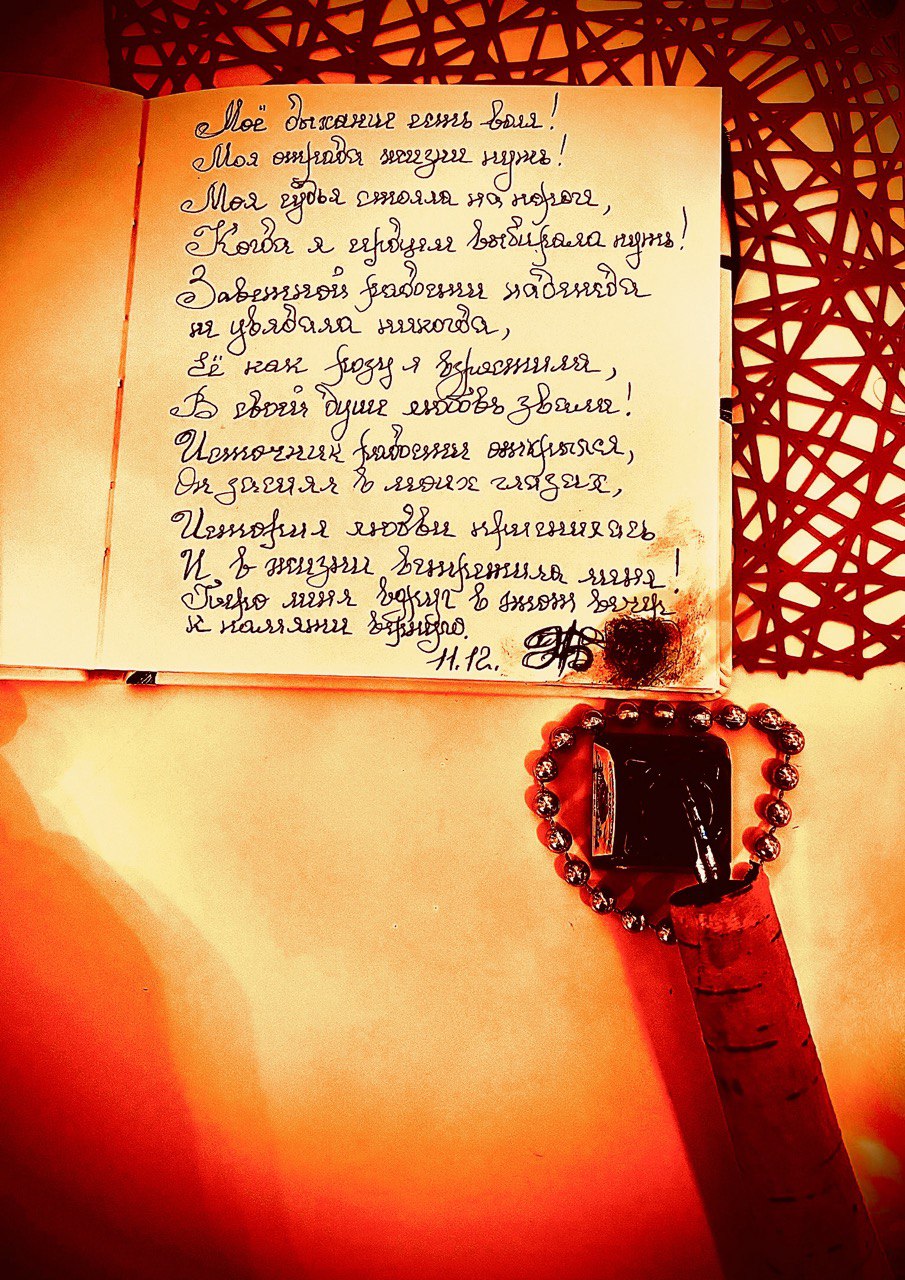 Моё дыхание есть воля!
Моя отрада жизни путь!
Моя судьба стояла на пороге,
Когда я сердцем выбирала путь!
Заветной радости надежда
не увядала никогда,
Её как розу я взрастила,
В своей душе любовь звала!
Источник радости открылся,
Он засиял в моих глазах,
История любви
И в жизни встретила меня!
Перо меня вдруг в этот вечер
к памяти вернуло.
11.12.